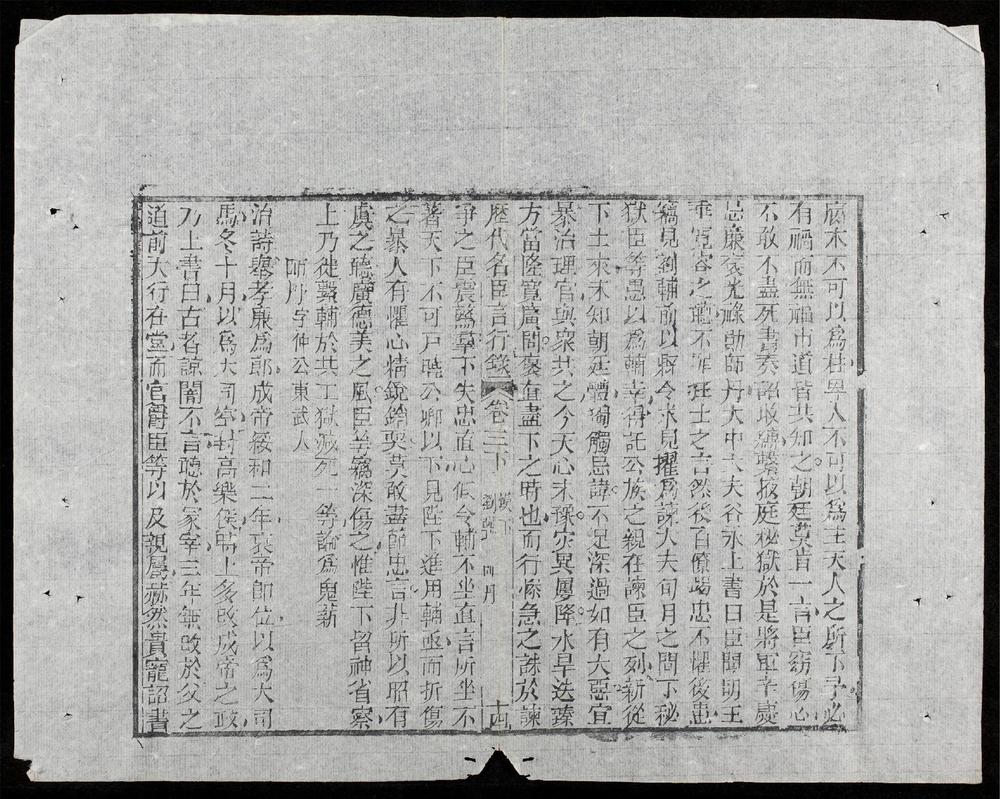 腐木不可以爲柱卑人不可以爲主天人之所不予必
有禍而無福市道皆共知之朝廷莫肯一言臣竊傷心
不敢不盡死書奏詔收縛繫掖庭秘獄於是將軍辛慶
忌廉襃光祿勳師丹大中大夫谷永上書曰臣聞明王
垂寬容之聽不罪狂士之言然後百僚竭忠不懼後患
竊見劉輔前以縣令求見擢爲諫大夫旬月之間下秘
獄臣等愚以爲輔幸得託公族之親在諫臣之列新從
下土來未知朝廷體獨觸忌諱不足深過如有大惡宜
暴治理官與衆共之今天心未豫灾異屢降水旱迭臻
方當隆寬廣問襃直盡下之時也而行慘急之誅於諫
歷代名臣言行錄 卷三下 漢下 劉輔 師丹 十四
爭之臣震驚羣下失忠直心假令輔不坐直言所坐不
著天下不可戶曉公卿以下見陛下進用輔亟而折傷
之暴人有懼心精銳銷耎莫敢盡節忠言非所以昭有
虞之聽廣德美之風臣等竊深傷之惟陛下留神省察
上乃徙繫輔於共工獄減死一等論爲鬼薪
師丹字仲公東武人
治詩舉孝廉爲郎成帝綏和二年哀帝即位以爲大司
馬冬十月以爲大司空封高樂侯時上多改成帝之政
乃上書曰古者諒闇不言聽於冢宰三年無改於父之
道前大行在堂而官爵臣等以及親屬赫然貴寵詔書